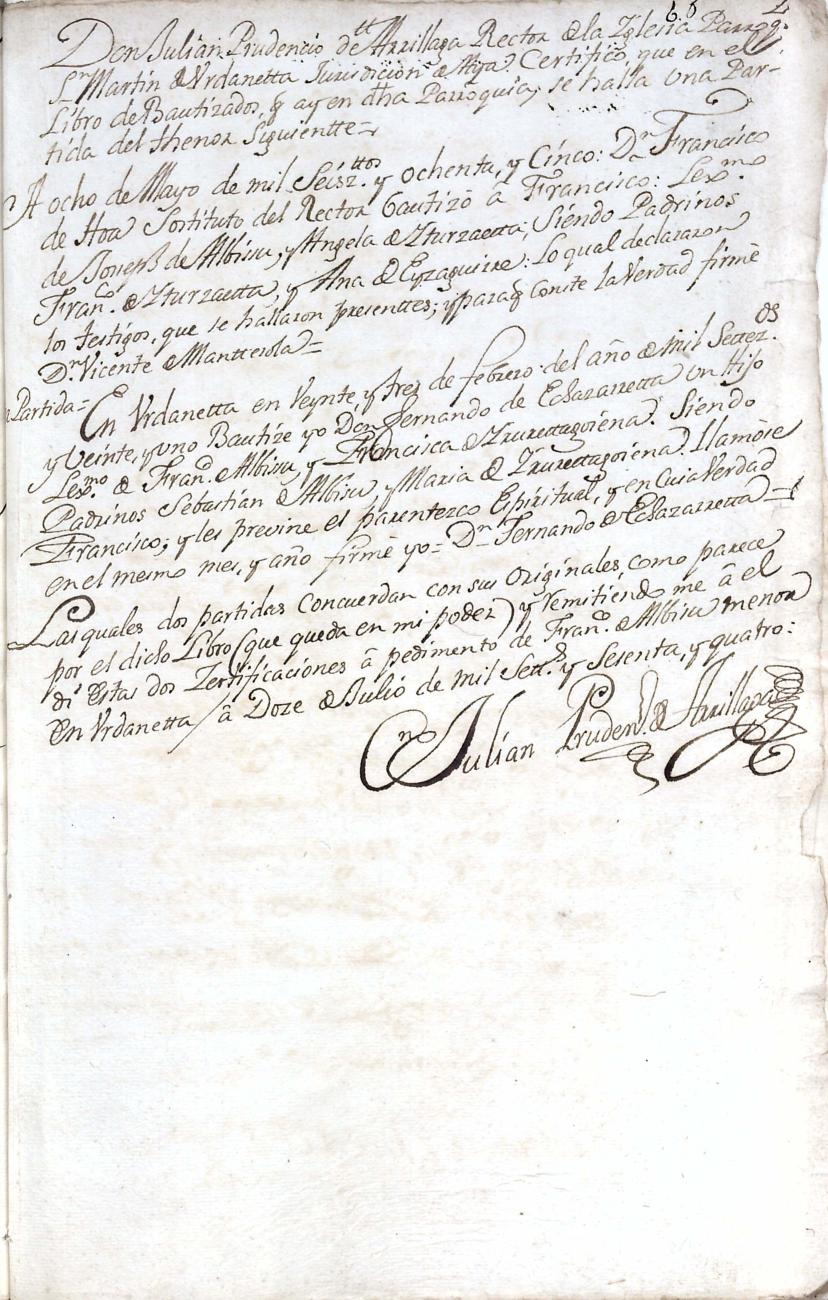 68
Don Julian Prudencio de Arrillaga Rector de la Yglesia Parroq.
Sn Martin de Vrdanetta Jurisdicion de Aya. Certifico, que en el
Libro de Bautizados, q ay en dha Parroquia, se halla Una Par-
tida del thenor Siguientte=
A ocho de Mayo de mil Seisz.ttos y ochenta, y Cinco: Dn Francisco
de Hoa Sostituto del Rector bautizò â Francisco: Lexmo
de Joseph de Albisu, y Angela de Yturzaetta; Siendo Padrinos
Franco. de Yturzaetta, y Ana de Eyzaguirre: Lo qual declararon
los testigos, que se hallaron presenttes; y paraq Conste la Verdad firmè
Dn Vicente de Mantterola=
Partida= En Vrdanetta en Veynte, y tres de febrero del año de Mil Settez.os
y Veinte, y uno Bautize yo Don Fernando de Echazarretta un Hijo
Lexmo. de Franco. de Albisu, y Francisca de Yrurettagoiena. Siendo
Padrinos Sebastian de Albisu, y Maria de Yrurettagoiena. Llamòse
Francisco; y les previne el parentezco Espiritual, y en Cuia Verdad
en el mesmo mes, y año firmè yo= Dn Fernando de Echazarretta=
Las quales dos partidas Concuerdan con sus Originales, como parece
por el dicho Libro (que queda en mi poder) y Remitiendo me â el
di estas dos Zertificaciones â pedimento de Franco. de Albisu menor
En Vrdanetta / â Doze de Julio de mil Settz.s y Sesenta, y quatro:
Dn Julian Pruden.o de Arrillaga